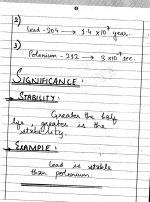 2)
Lead-204 → 1.4 x10¹⁷ year.
3)
Polonium-212 → 3 x10⁻⁷ sec.
SIGNIFICANCE:
→ STABILITY:
Greater the half
life, greater is the
stability.
→ EXAMPLE:
Lead is stable
than polonium.